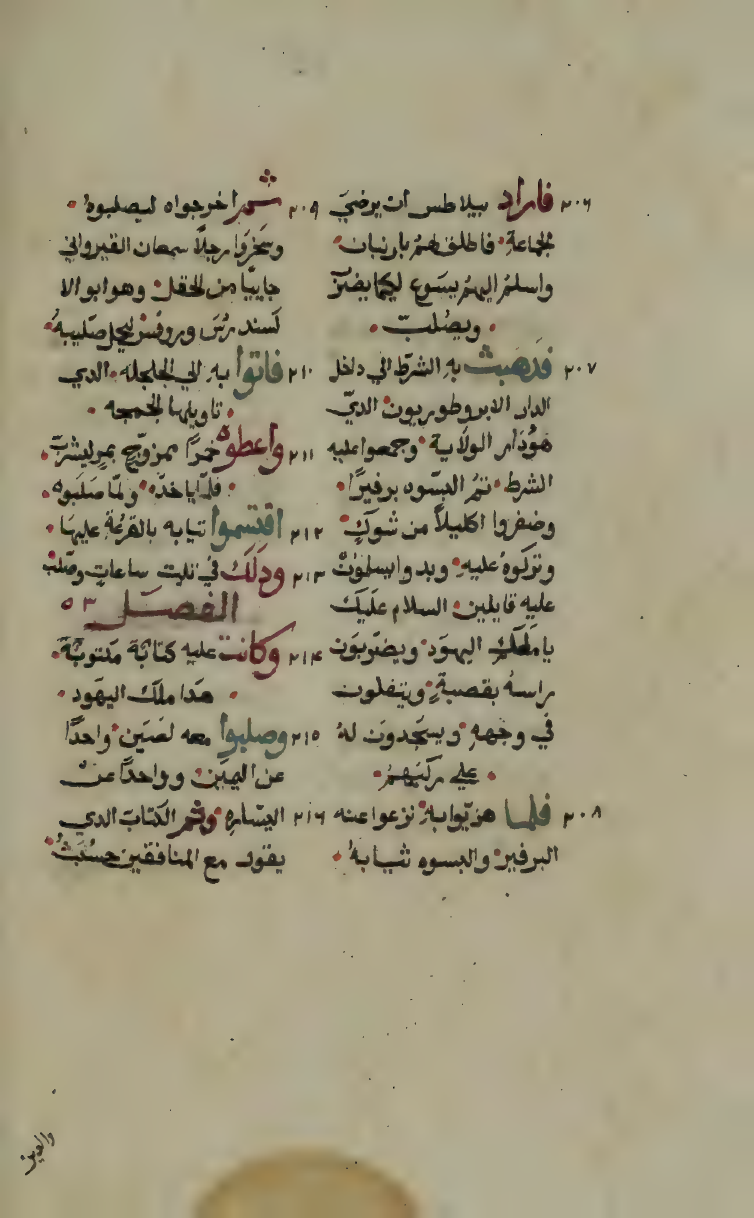 ٢٠٦ فاراد بيلاطس ان يرضي
الجماعة فاطلق لهم باربان
واسلم اليهم يسوع ليكما يضرب
ويصلب
٢٠٧ فدهبت به الشرط الي داخل
الدار الابروطوريون الدي
هو دار الولاية وجمعوا عليه
الشرط تم البسوه برفيرا
وضفروا اكليلا من شوك
وتركوه عليه وبدوا يسلون
عليه قايلين السلام عليك
يا ملك اليهود ويضربون
راسه بقصبة ويتفلون
في وجهه ويسجدون له
علي ركبهم
٢٠٨ فلما هزيوا به نزعوا عنه
البرفير والبسوه ثيابه
٢٠٩ ثم اخرجواه ليصلبوه
وسخروا رجلا سمعان القيرواني
جاييا من الحقل وهو ابو الا
كسندرس وروفس ليحمل صليبه
٢١٠ فاتوا به الي الجلجله الدي
تاويلها الجمجمه
٢١١ واعطوه خمرا ممزوج بمر ليشرب
فلم ياخده ولما صلبوه
٢١٢ اقتسموا تيابه بالقرعة عليها
٢١٣ ودلك في تلت ساعات وصلب
الفصل ٥٣
٢١٤ وكانت عليه كتابة مكتوبة
هدا ملك اليهود
٢١٥ وصلبوا معه لصين واحدا
عن اليمين وواحدا عن
٢١٦ اليساره وتم الكتاب الدي
يقول مع المنافقين حسبت
والدين